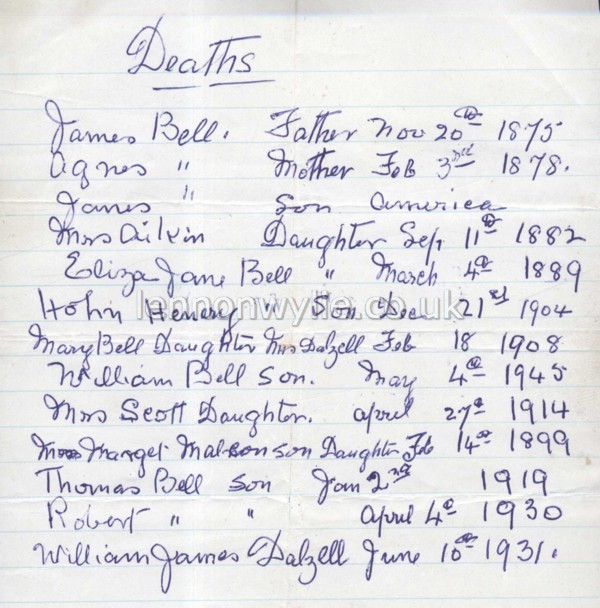 Deaths
James Bell. Father Nov 20th 1875
Agnes " Mother Feb 3rd 1878.
James " Son America
Mrs Aitkin Daughter Sep 11th 1882
Eliza Jane Bell " March 4th 1889
Hohn Henery " Son Dec 21st 1904
lennonwylie.co.uk
Mary Bell Daughter Mrs Dalzell Feb 18 1908
William Bell Son. May 4th 1945
Mrs Scott Daughter. April 27th 1914
Marget Daughter Feb 14th 1899
Thomas Bell Son Jan 2nd 1919
Robert " " April 4th 1930
William James Dalzell June 10th 1931.